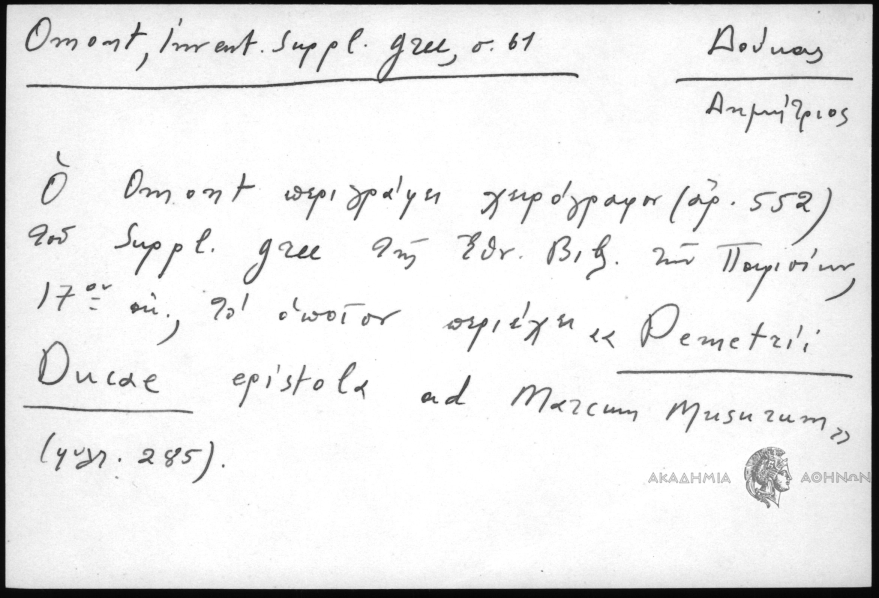 Omont, Invent. Suppl. grec, σ. 61
Δούκας
Δημήτριος
Ὁ Omont περιγράφει χειρόγραφον (ἀρ. 552)
τοῦ Suppl. grec τῆς Ἐθν. Βιβ. τῶν Παρισίων,
17ου αἰ., τὸ ὁποῖον περιέχει «Demetrii
Ducae epistola ad Marcum Musurum»
(φύλ. 285).
ΑΚΑΔΗΜΙΑ ΑΘΗΝΩΝ